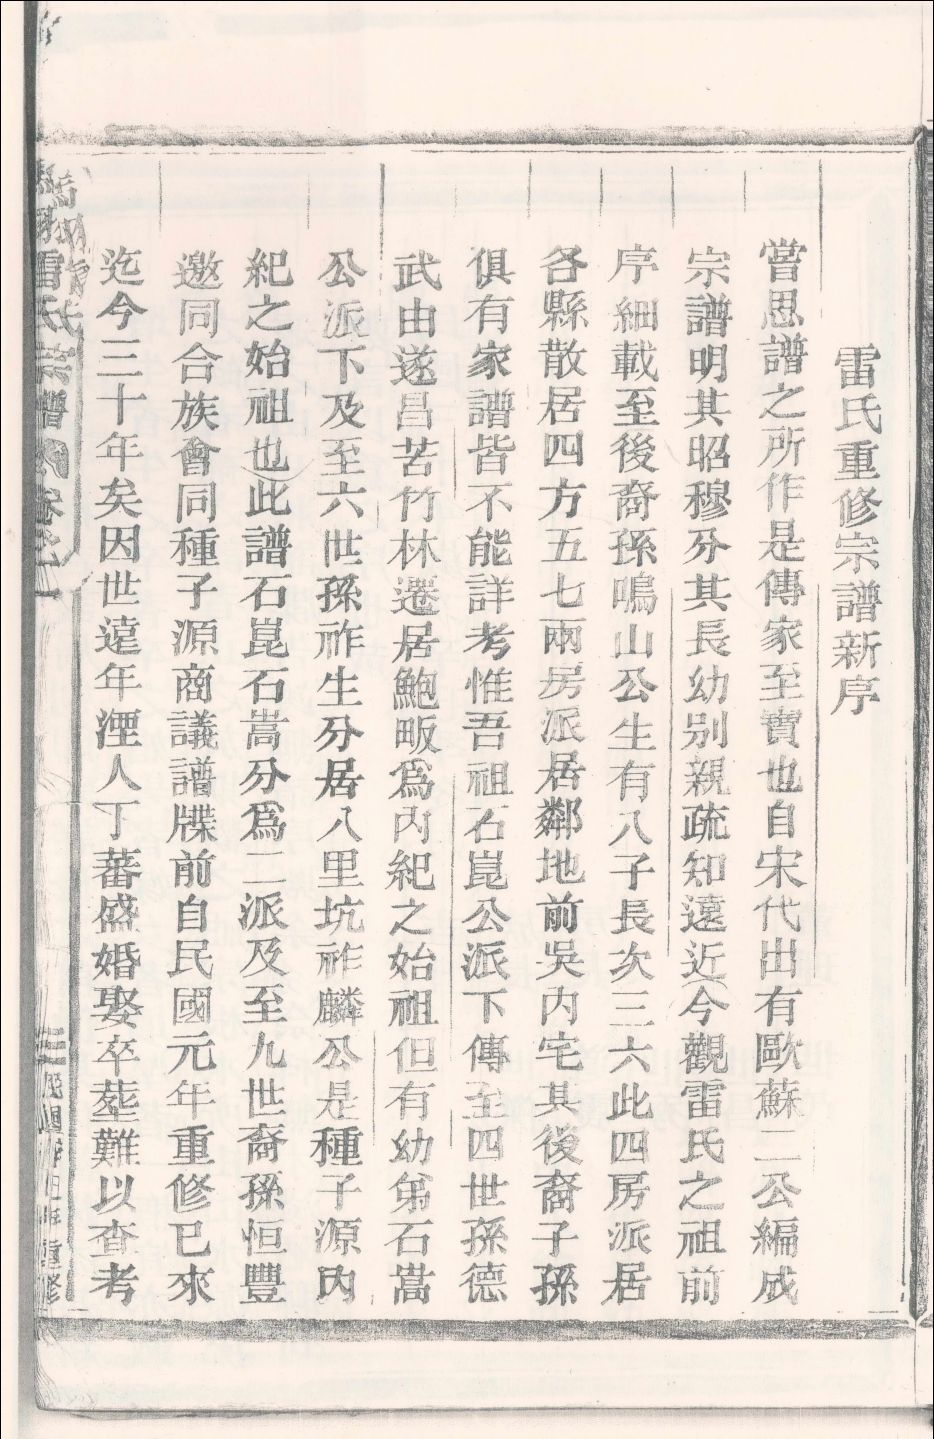 雷氏重修宗譜新序
嘗思譜之所作是傳家至寶也自宋代出有歐蘇二公編成
宗譜明其昭穆分其長幼別親疏知遠近今觀雷氏之祖前
序細載至後裔孫鳴山公生有八子長次三六此四房派居
各縣散居四方五七兩房派居鄰地前吳內宅其後裔子孫
俱有家譜皆不能詳考惟吾祖石崑公派下傳至四世孫德
武由遂昌苦竹林遷居鮑畈爲內紀之始祖但有幼弟石嵩
公派下及至六世孫祚生分居八里坑祚麟公是種子源內
紀之始祖也此譜石崑石嵩分爲二派及至九世裔孫恒豐
邀同合族會同種子源商議譜牒前自民國元年重修已來
迄今三十年矣因世遠年湮人丁蕃盛婚娶卒塟難以查考
雷氏宗譜
重修